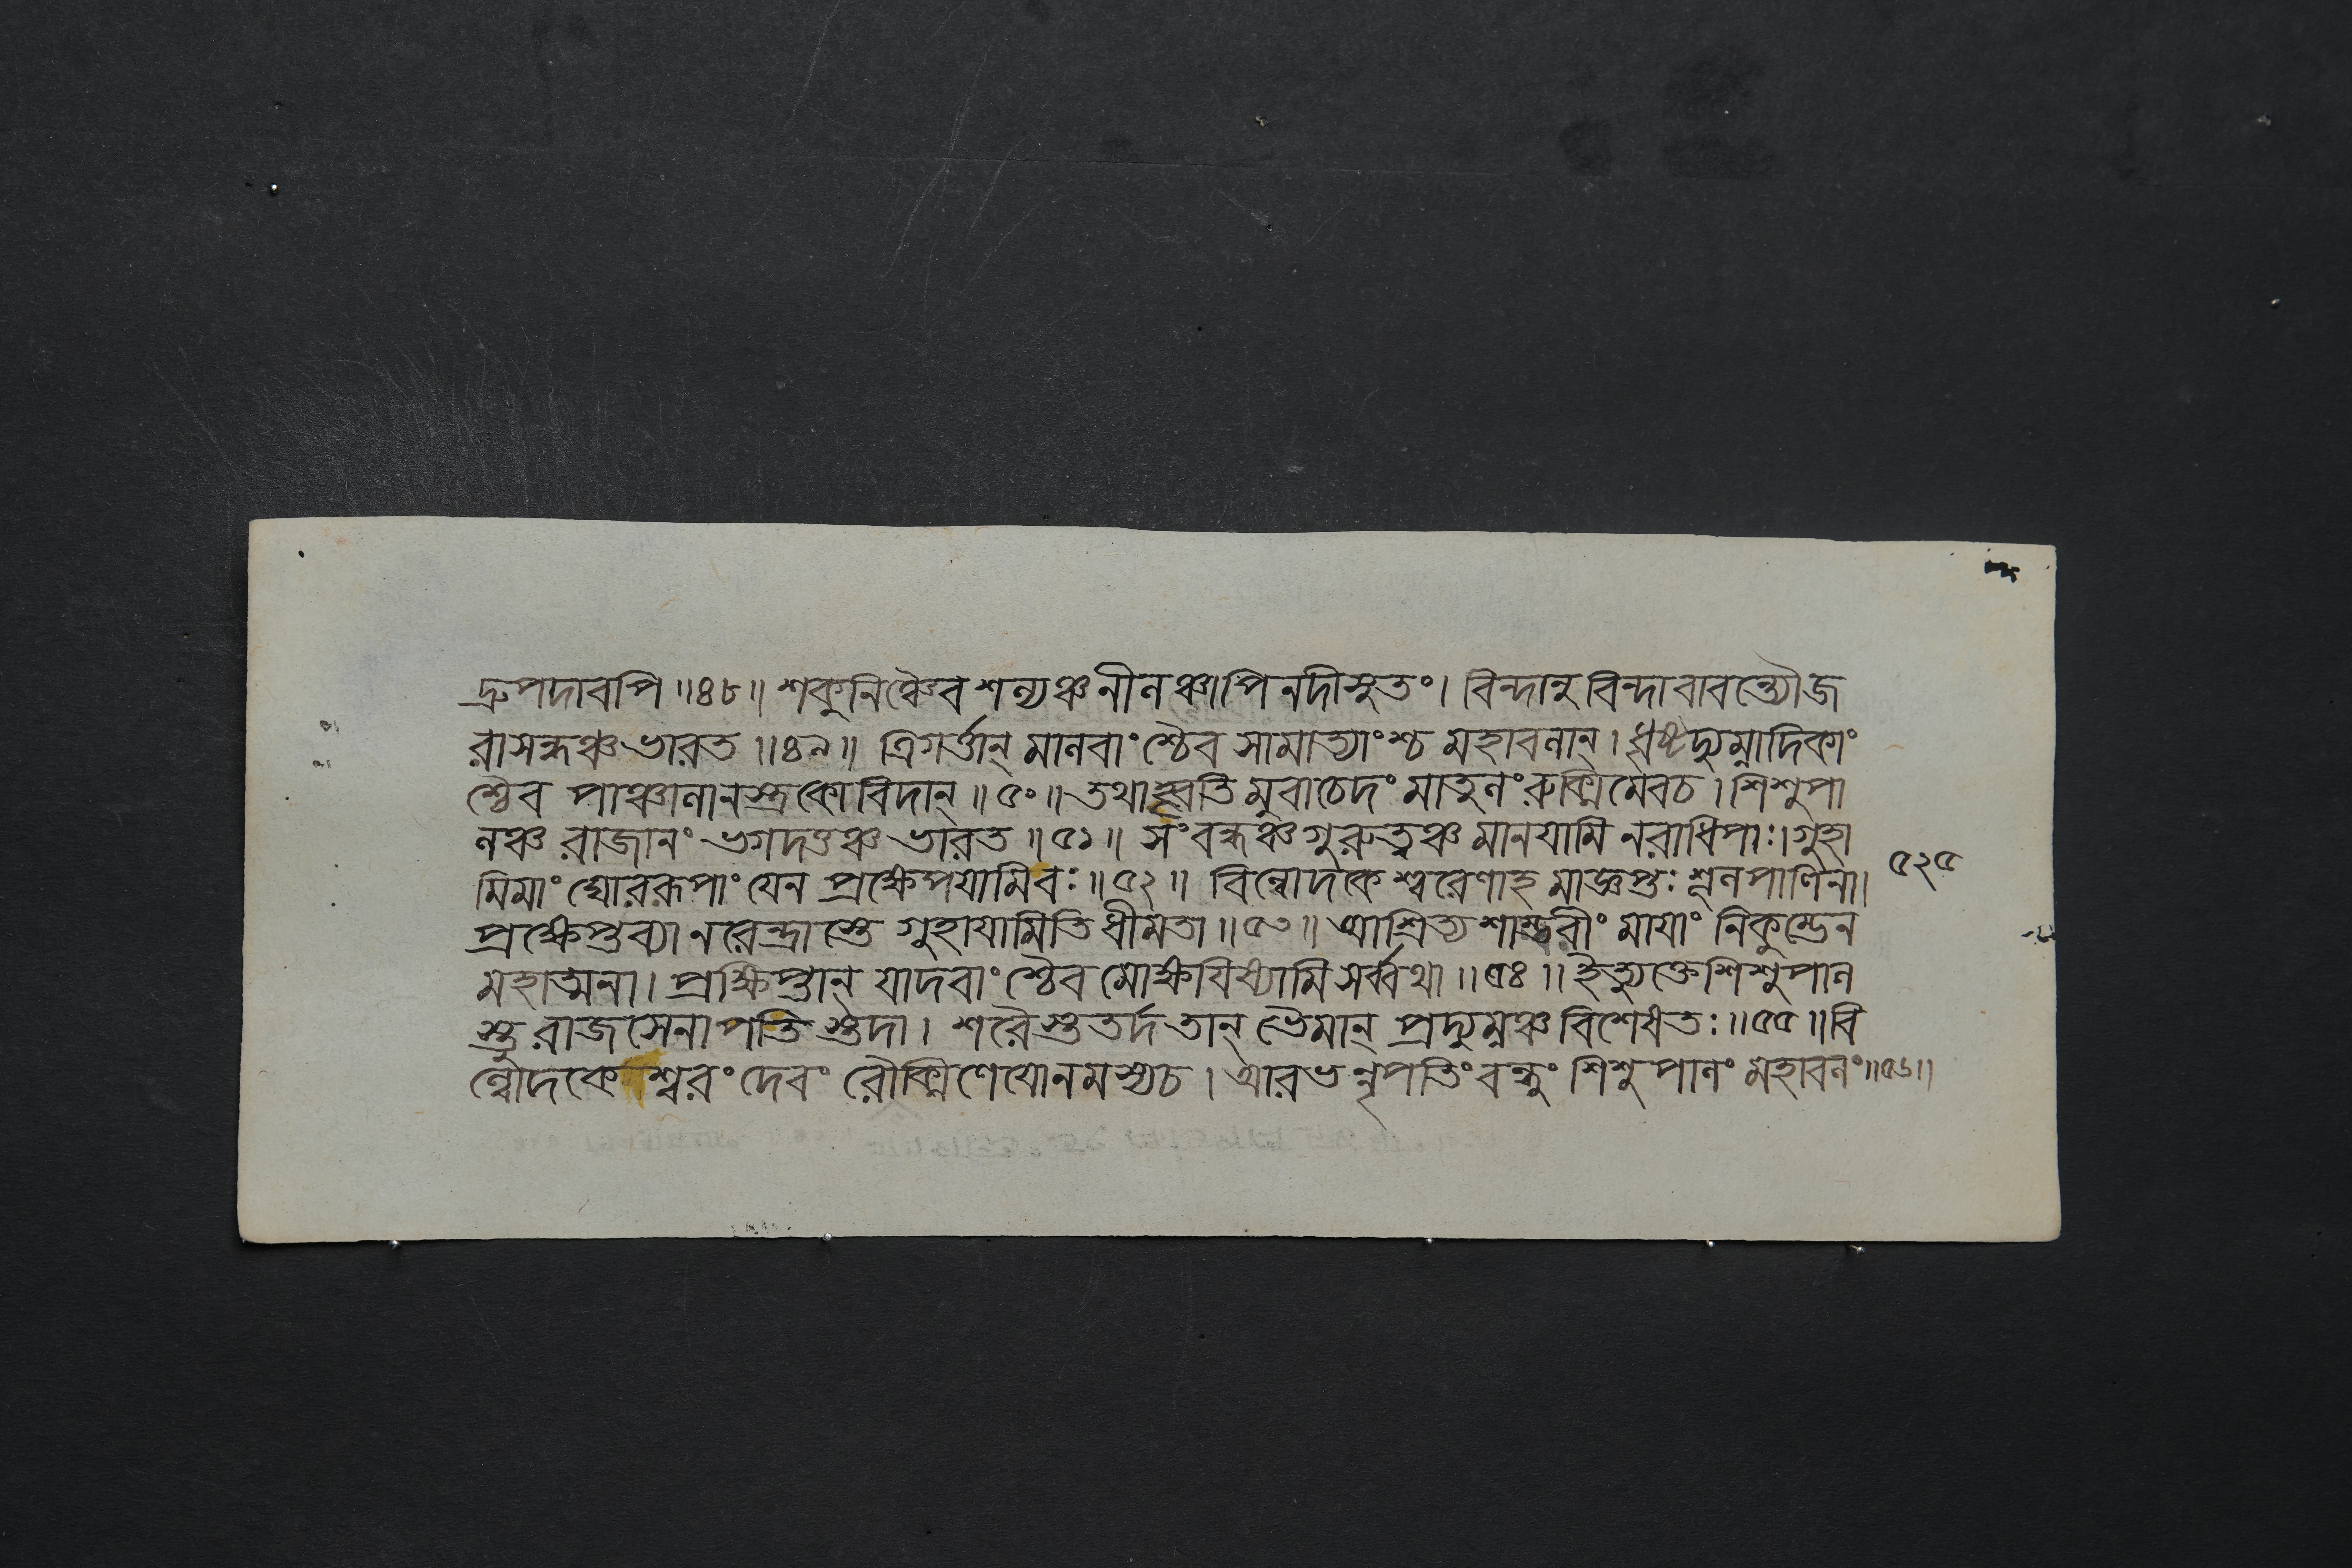 দ্রুপদাবপি ॥৪৮॥ শকুনিঞ্চৈব শল্যঞ্চ নীলঞ্চাপি নদীসুতং। বিন্দানুবিন্দাবাবন্ত্যৌ জ
রাসন্ধঞ্চ ভারত ॥৪৯॥ ত্রিগর্ত্তান্ মালবাংশ্চৈব সামাত্যাংশ্চ মহাবলান্। ধৃষ্টদ্যুম্নাদিকাং
শ্চৈব পাঞ্চালানস্ত্রকোবিদান্ ॥৫০॥ তথাহ্বতিমুবাচেদং মাতুলং রুক্মিমেবচ। শিশুপা
লঞ্চ রাজানং ভগদত্তঞ্চ ভারত ॥৫১॥ সংবন্ধঞ্চ গুরুত্বঞ্চ মানয়ামি নরাধিপাঃ। গুহা
মিমাং ঘোররূপাং যেন প্রক্ষেপয়ামিবঃ ॥৫২॥ বিল্বোদকেশ্বরেণাহমাজ্ঞপ্তঃ শূলপাণিনা।
৫২৫
প্রক্ষেপ্তব্যা নরেন্দ্রাস্তে গুহায়ামিতি ধীমতা ॥৫৩॥ আশ্রিত্য শাম্ভরীং মায়াং নিকুম্ভেন
মহাত্মনা। প্রক্ষিপ্তান্ যাদবাংশ্চৈব মোক্ষয়িষ্যামি সর্ব্বথা ॥৫৪॥ ইত্যুক্তে শিশুপাল
স্তু রাজসেনাপতিস্তদা। শরৈস্তুতর্দ তান্ ভৈমান্ প্রদ্যুম্নঞ্চ বিশেষতঃ ॥৫৫॥ বি
ল্বোদকেশ্বরং দেবং রৌক্মিণেয়োনমস্যচ। আরভন্নৃপতিং বন্ধুং শিশুপালং মহাবলং ॥৫৬॥